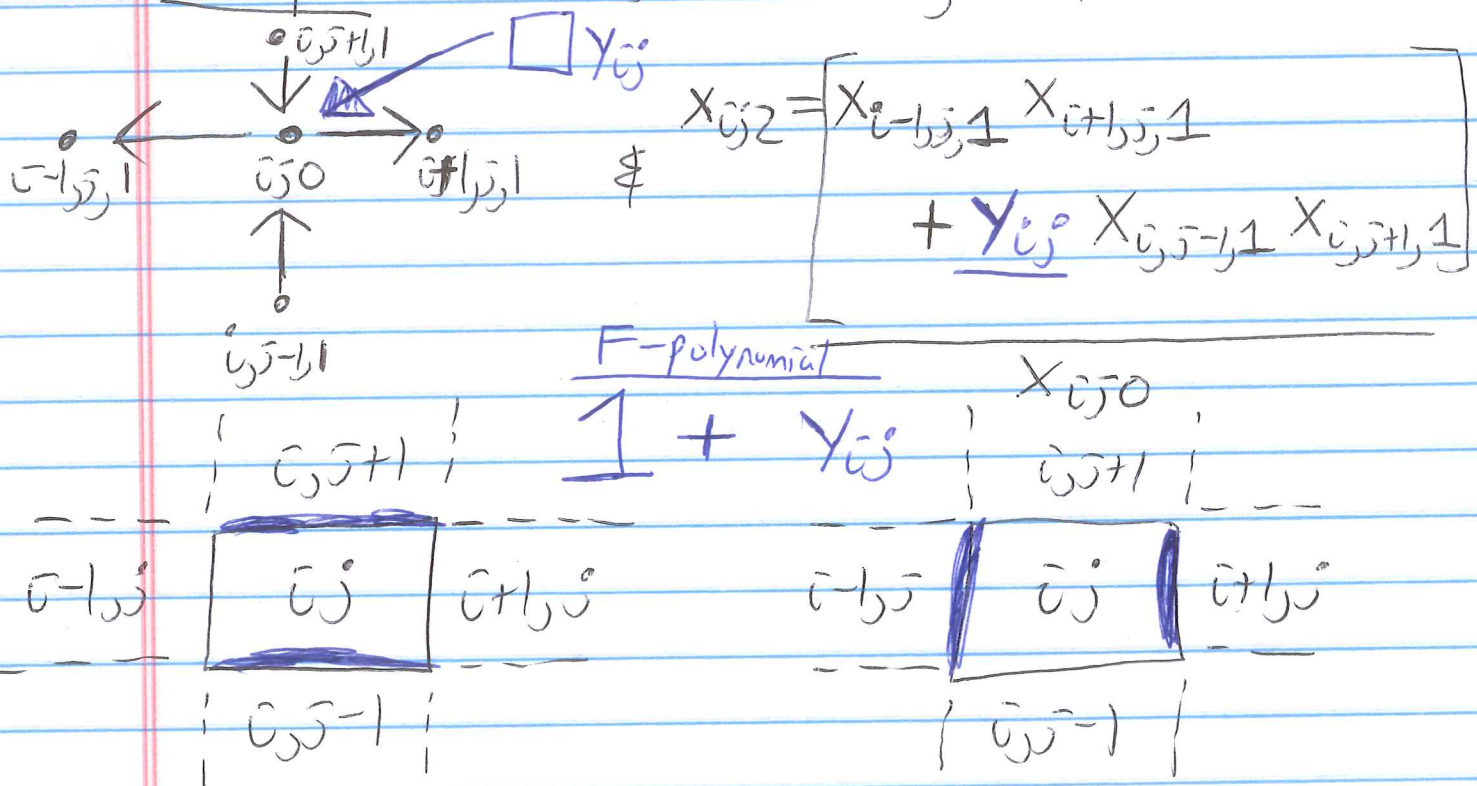 i,j+1,1
□ Yij
i-1,j,1 ij0 i+1,j,1 & Xij2 = [Xi-1,j,1 Xi+1,j,1
+ Yij Xi,j-1,1 Xi,j+1,1]
i,j-1,1
F-polynomial
Xij0
1 + Yij
i,j+1 i,j+1
i-1,j ij i+1,j i-1,j ij i+1,j
i,j-1 i,j-1